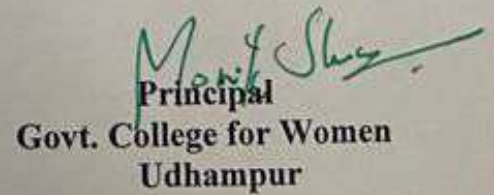 Principal
Govt. College for Women
Udhampur